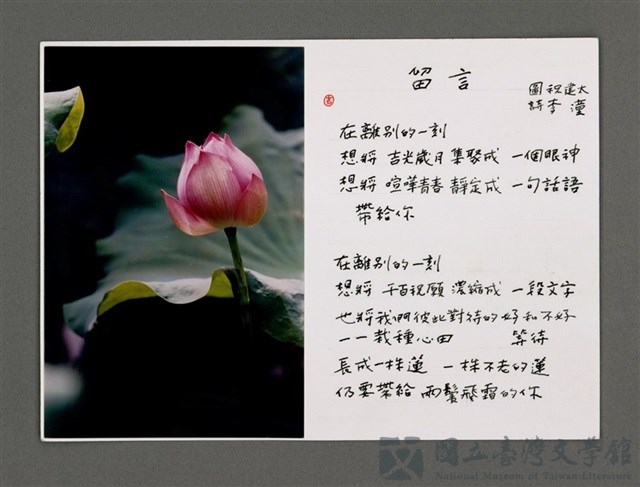 留言
圖 祝建太
詩 李潼
在離別的一刻
想將 吉光歲月 集聚成 一個眼神
想將 喧嘩青春 靜定成 一句話語
帶給你
在離別的一刻
想將 千百祝願 濃縮成 一段文字
也將我們彼此對待的好和不好
一一栽種心田 等待
長成一株蓮 一株不老的蓮
仍要帶給 兩鬢飛霜的你
國立臺灣文學館
National Museum of Taiwan Literature